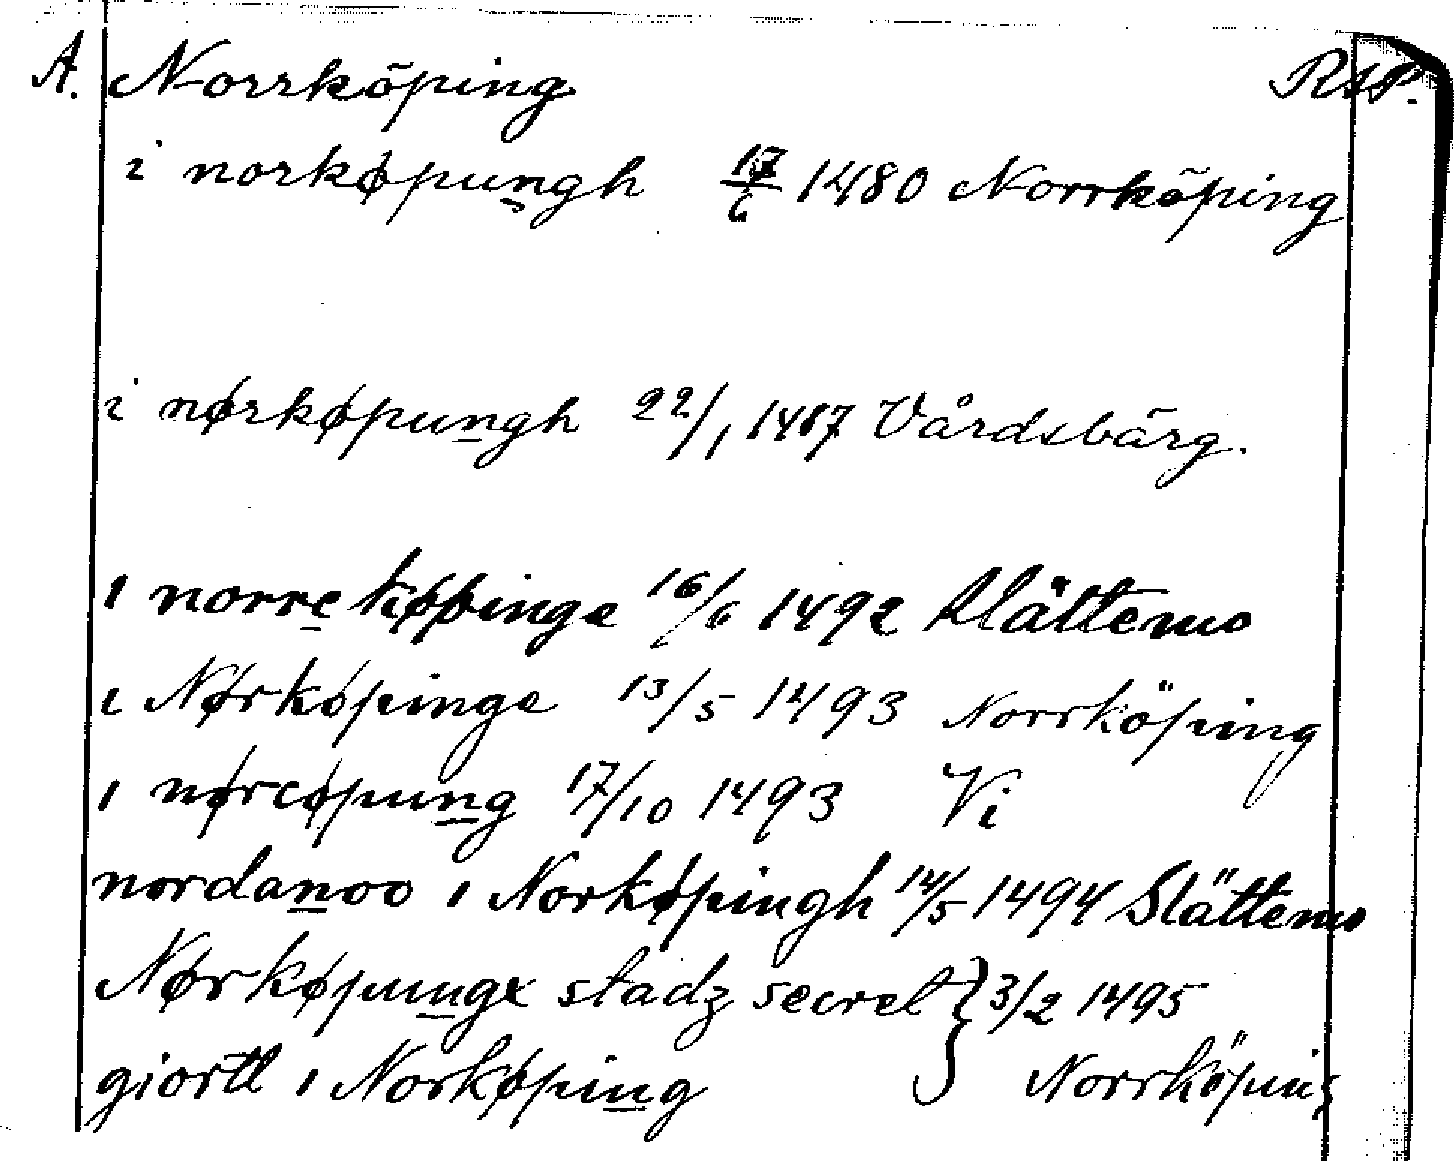 A. Norrköping RAP.
i norkøpungh 17/6 1480 Norrköping
i nørkøpungh 22/1 1487 Vårdsbärg.
i norre køpinge 16/6 1492 Slättemo
i Nørkøpinge 13/5 1493 Norrköping
i nørcøpung 17/10 1493 Vi
nordanoo i Norkøpingh 14/5 1494 Slättemo
Nørkøpungx stadz secret } 3/2 1495
giortt i Norkøping Norrköping